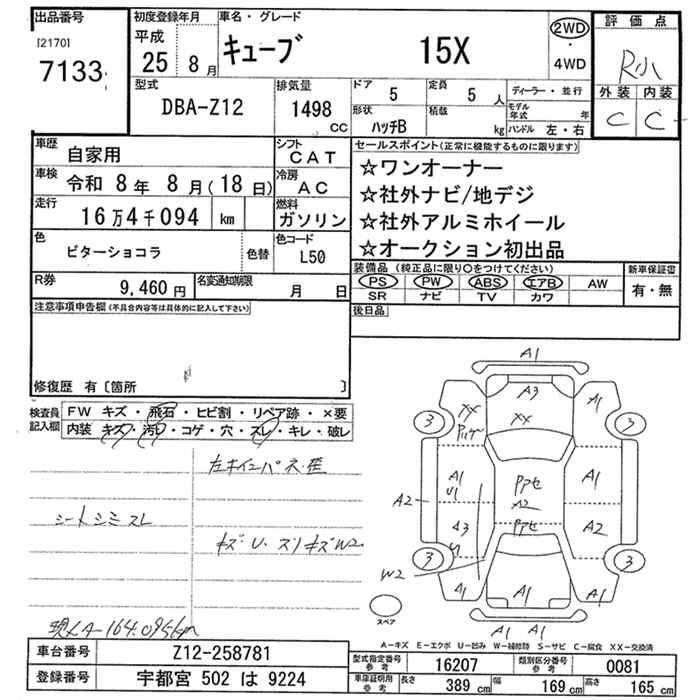 出品番号
[2170]
7133
初度登録年月
平成
25年 8月
車名・グレード
キューブ 15X
2WD
・
4WD
評価点
R小
外装 内装
C C
型式
DBA-Z12
排気量
1498
CC
ドア
5
定員
5 人
ディーラー・並行
形状
ハッチB
積載
kg
モデル年式 年
ハンドル 左・右
車歴 自家用
シフト
CAT
車検 令和 8年 8月(18日)
冷房
AC
走行 16万4千094 km
燃料
ガソリン
色
ビターショコラ
色替
色コード
L50
R券
9,460円
名変通知期限
月 日
セールスポイント(正常に機能するものに限ります)
☆ワンオーナー
☆社外ナビ/地デジ
☆社外アルミホイール
☆オークション初出品
装備品 (純正品に限り○をつけてください)
PS PW ABS エアB AW
SR ナビ TV カワ
新車保証書
有・無
後日品
注意事項申告欄(不具合内容等は具体的に記入して下さい)
修復歴 有〔箇所 〕
検査員記入欄
FW キズ・飛石・ヒビ割・リペア跡・×要
内装 キズ・汚れ・コゲ・穴・スレ・キレ・破レ
シートシミスレ
キズ・U・スリキズW2
現メーター164.095km
A1
A3
XX
XX
A1
3
3
A1
U1
A1
A2
A2
A3
U
A2
W2
3
3
A1
A1
A1 A1
スペア
A-キズ E-エクボ U-凹み W-補修跡 S-サビ C-腐食 XX-交換済
車台番号 Z12-258781
登録番号 宇都宮 502 は 9224
型式指定番号
参考
16207
類別区分番号
参考
0081
車庫証明用
参考
長さ 389 cm
幅 169 cm
高さ 165 cm